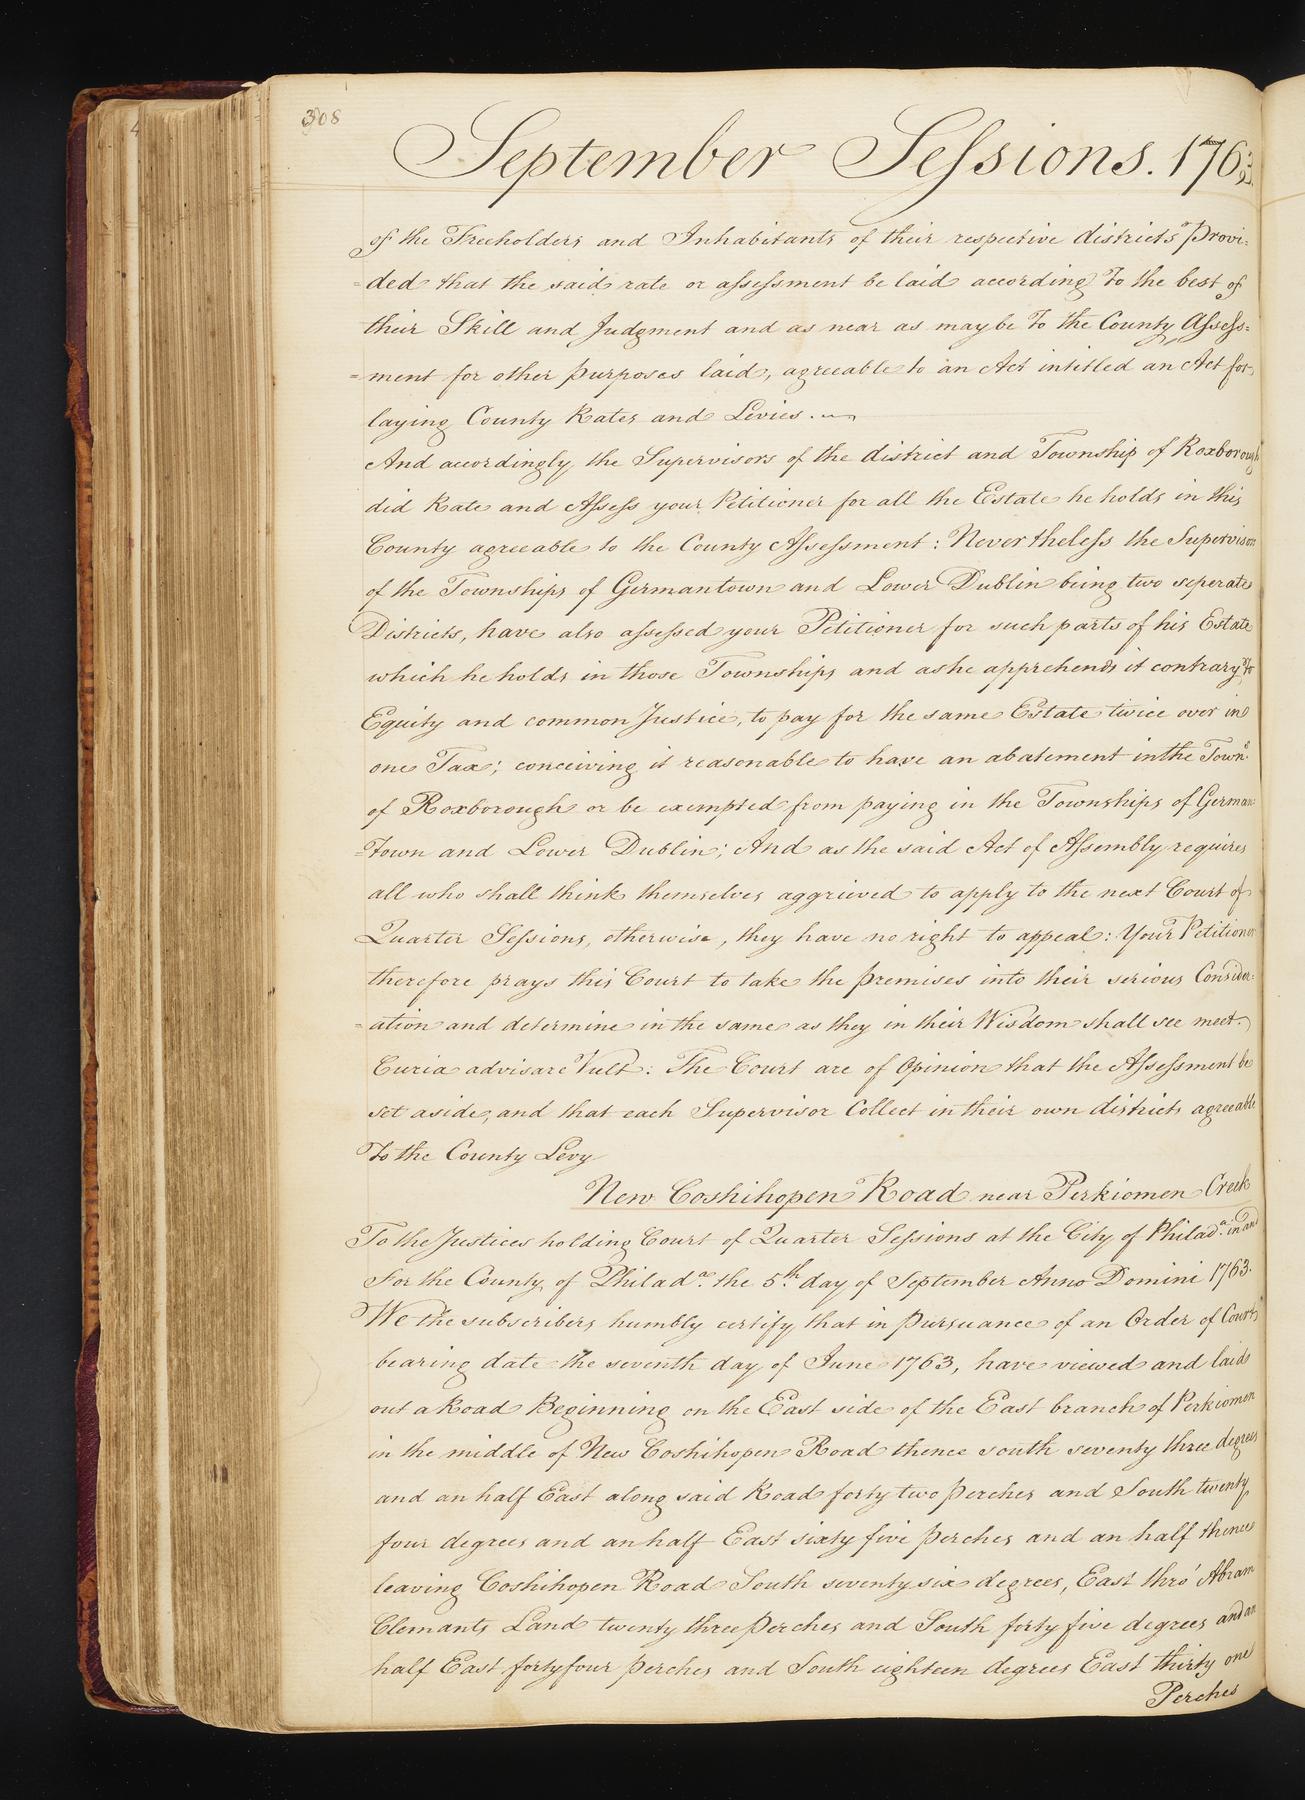 308
September Sessions. 1763.
of the Freeholders and Inhabitants of their respective districts Provi=
=ded that the said rate or assessment be laid according To the best of
their Skill and Judgment and as near as maybe To the County Assess=
=ment for other purposes laid, agreeable to an Act intitled an Act for
laying County Rates and Levies.
And accordingly the Supervisors of the district and Township of Roxborough
did Rate and Assess your Petitioner for all the Estate he holds in this
County agreeable to the County Assessment: Nevertheless the Supervisors
of the Townships of Germantown and Lower Dublin being two seperate
Districts, have also assessed your Petitioner for such parts of his Estate
which he holds in those Townships and as he apprehends it contrary To
Equity and common Justice, to pay for the same Estate twice over in
one Tax; conceiving it reasonable to have an abatement in the Town.
of Roxborough or be exempted from paying in the Townships of German=
=Town and Lower Dublin; And as the said Act of Assembly requires
all who shall think themselves aggrieved to apply to the next Court of
Quarter Sessions, otherwise, they have no right to appeal: Your Petitioner
therefore prays this Court to take the premises into their serious Consider=
=ation and determine in the same as they in their Wisdom shall see meet.
Curia advisare Vult: The Court are of Opinion that the Assessment be
set aside, and that each Supervisor Collect in their own districts agreeable
To the County Levy
New Coshihopen Road near Perkiomen Creek
To the Justices holding Court of Quarter Sessions at the City of Philada. in and
For the County of Philada. the 5th day of September Anno Domini 1763.
We the subscribers humbly certify that in pursuance of an Order of Court
bearing date the seventh day of June 1763, have viewed and laid
out a Road Beginning on the East side of the East branch of Perkiomen
in the middle of New Coshihopen Road thence south seventy three degrees
and an half East along said Road forty two Perches and South twenty
four degrees and an half East sixty five perches and an half thence
leaving Coshihopen Road South seventy six degrees, East thro' Abram
Clemants Land twenty three Perches and South forty five degrees and an
half East forty four perches and South eighteen degrees East thirty one
Perches